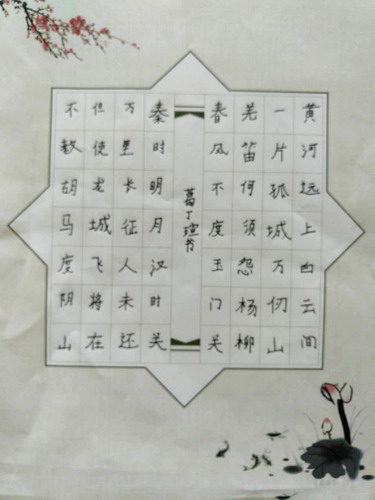 黄河远上白云间
一片孤城万仞山
羌笛何须怨杨柳
春风不度玉门关
葛丁瑄书
秦时明月汉时关
万里长征人未还
但使龙城飞将在
不教胡马度阴山